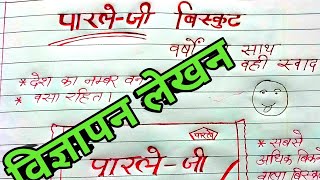 पारले-जी बिस्कुट
वर्षों साथ
वही स्वाद
* देश का नम्बर वन
* वसा रहित।
विज्ञापन लेखन
पारले
पारले-जी
* सबसे
अधिक बिकने
वाला बिस्कुट